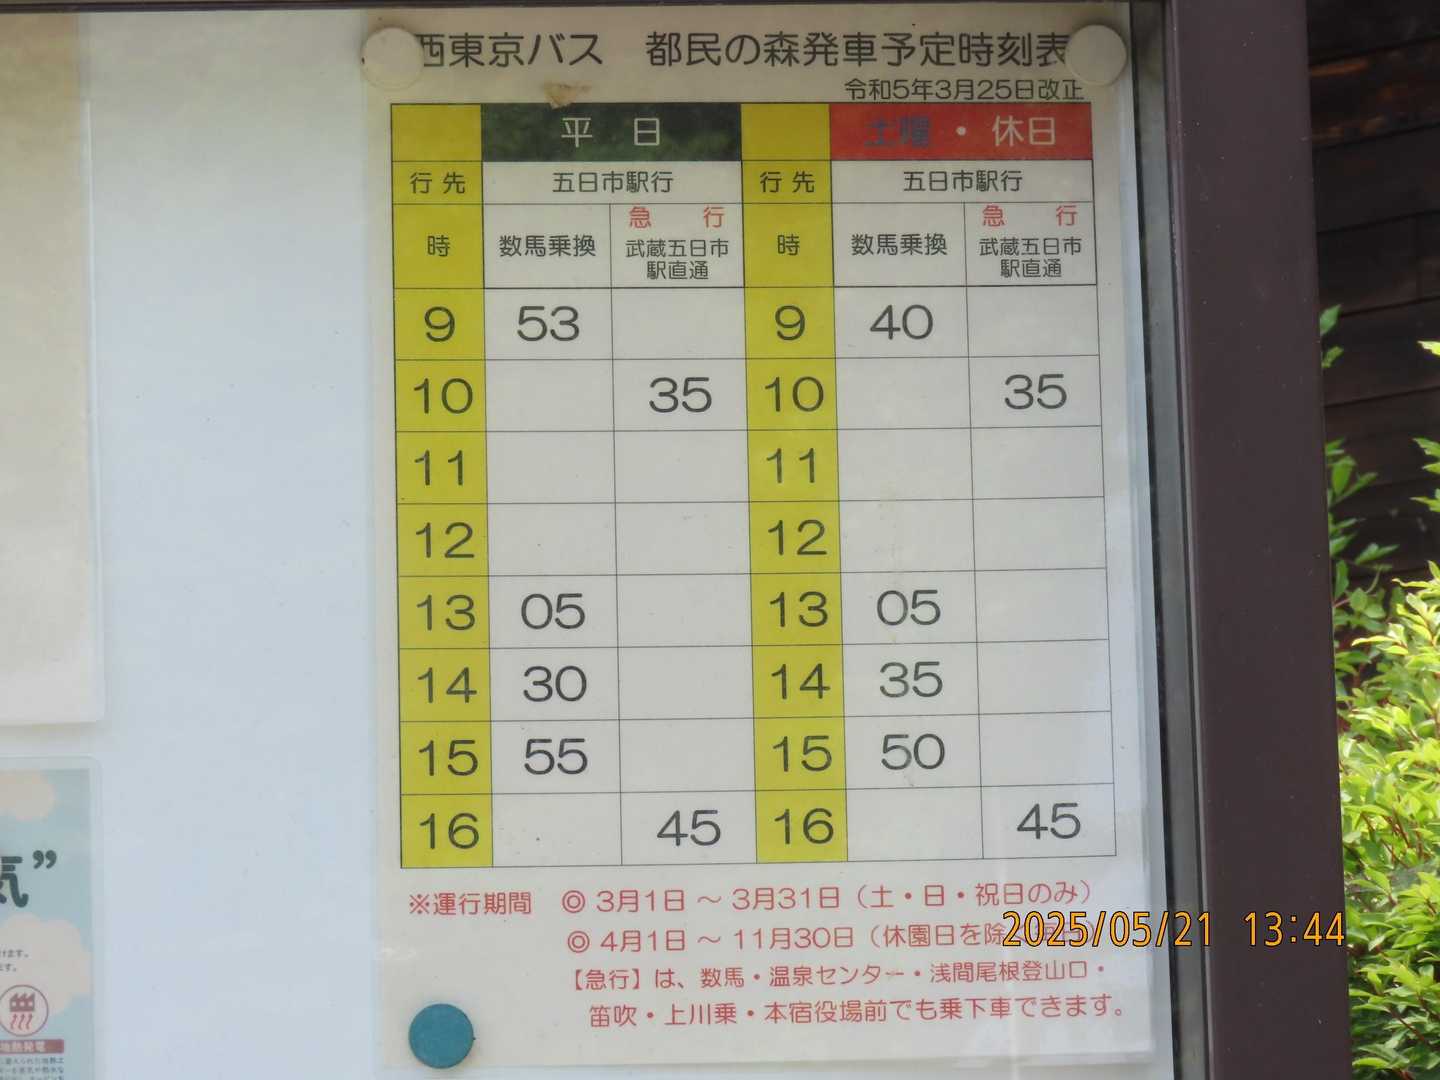 西東京バス 都民の森発車予定時刻表
令和5年3月25日改正
平 日 土曜・休日
行先 五日市駅行 行先 五日市駅行
時 数馬乗換 急 行 武蔵五日市駅直通 時 数馬乗換 急 行 武蔵五日市駅直通
9 53 9 40
10 35 10 35
11 11
12 12
13 05 13 05
14 30 14 35
15 55 15 50
16 45 16 45
※運行期間 ◎3月1日～3月31日(土・日・祝日のみ)
◎4月1日～11月30日(休園日を除
2025/05/21 13:44
【急行】は、数馬・温泉センター・浅間尾根登山口・
笛吹・上川乗・本宿役場前でも乗下車できます。
気”
地熱発電